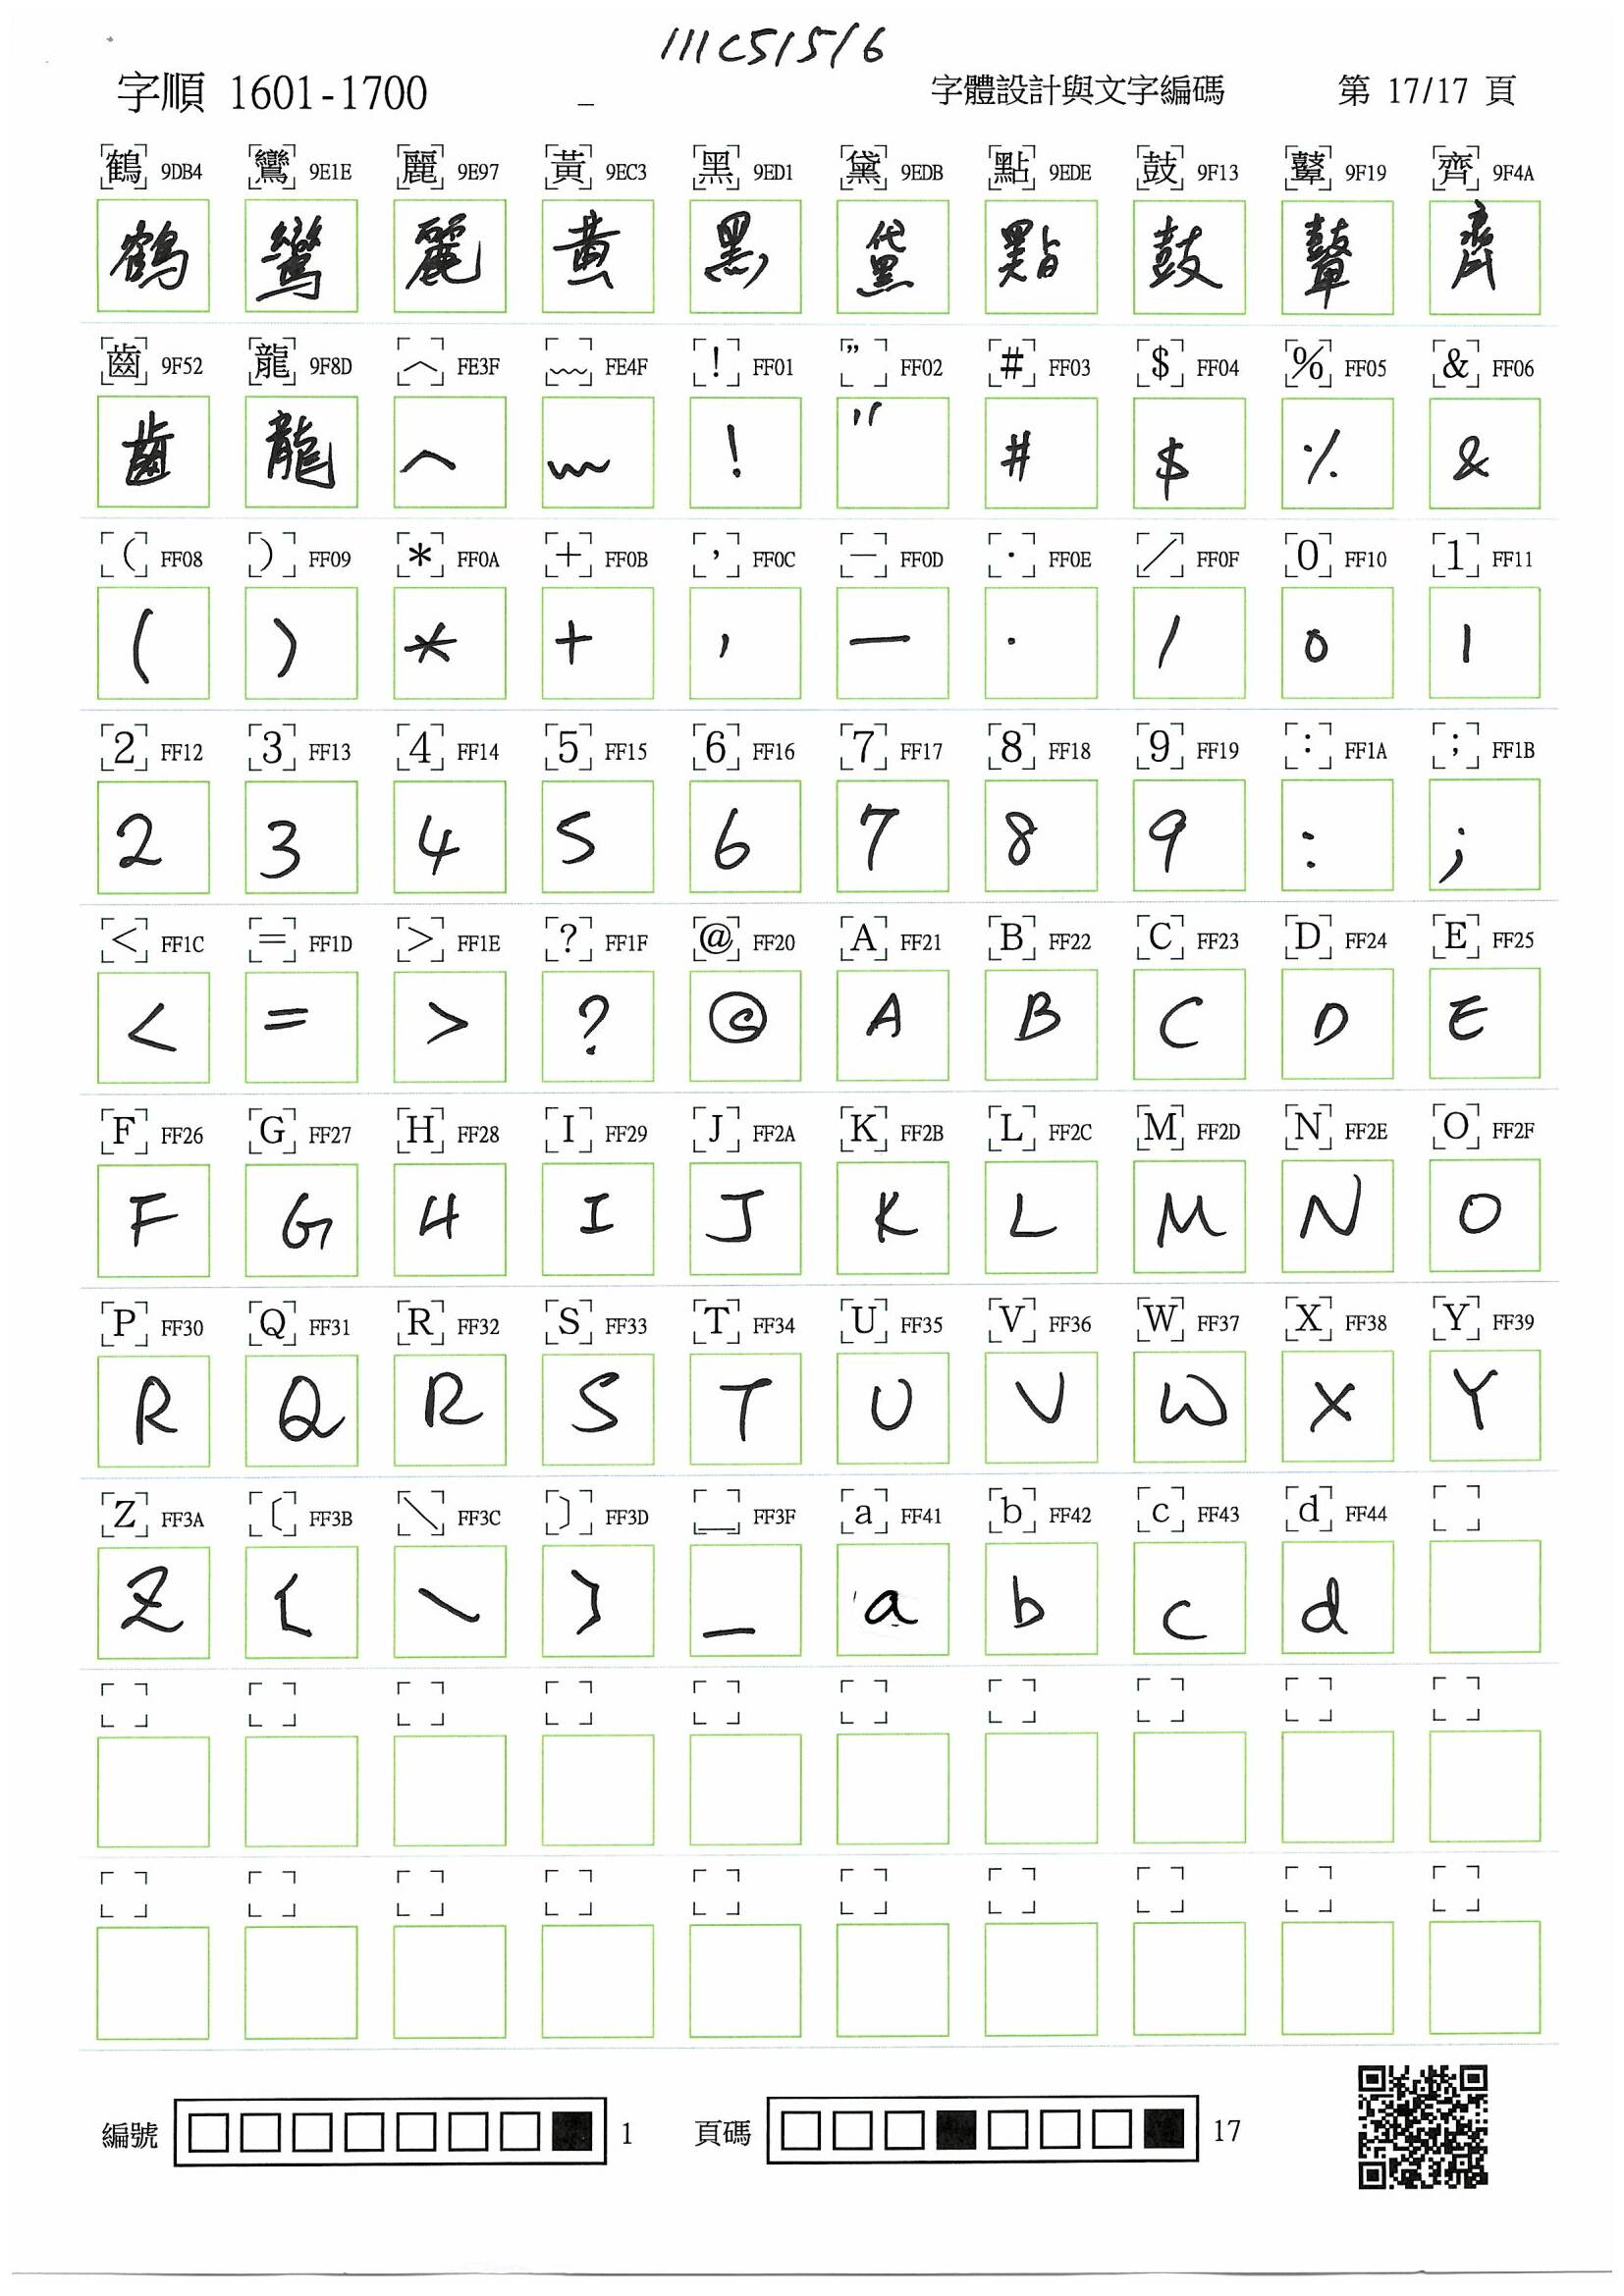 111C51516
字順 1601-1700 _ 字體設計與文字編碼 第 17/17 頁
鶴 9DB4 鸞 9E1E 麗 9E97 黃 9EC3 黑 9ED1 黛 9EDB 點 9EDE 鼓 9F13 鼙 9F19 齊 9F4A
鶴 鸞 麗 黃 黑 黛 點 鼓 鼙 齊
齒 9F52 龍 9F8D ︿ FE3F ﹏ FE4F ! FF01 " FF02 # FF03 $ FF04 % FF05 & FF06
齒 龍 ︿ ﹏ ! " # $ % &
( FF08 ) FF09 * FF0A + FF0B , FF0C － FF0D . FF0E / FF0F 0 FF10 1 FF11
( ) * + , － . / 0 1
2 FF12 3 FF13 4 FF14 5 FF15 6 FF16 7 FF17 8 FF18 9 FF19 : FF1A ; FF1B
2 3 4 5 6 7 8 9 : ;
< FF1C = FF1D > FF1E ? FF1F @ FF20 A FF21 B FF22 C FF23 D FF24 E FF25
< = > ? @ A B C D E
F FF26 G FF27 H FF28 I FF29 J FF2A K FF2B L FF2C M FF2D N FF2E O FF2F
F G H I J K L M N O
P FF30 Q FF31 R FF32 S FF33 T FF34 U FF35 V FF36 W FF37 X FF38 Y FF39
R Q R S T U V W X Y
Z FF3A 〔 FF3B \ FF3C 〕 FF3D _ FF3F a FF41 b FF42 c FF43 d FF44
Z 〔 \ 〕 _ a b c d
編號 1 頁碼 17